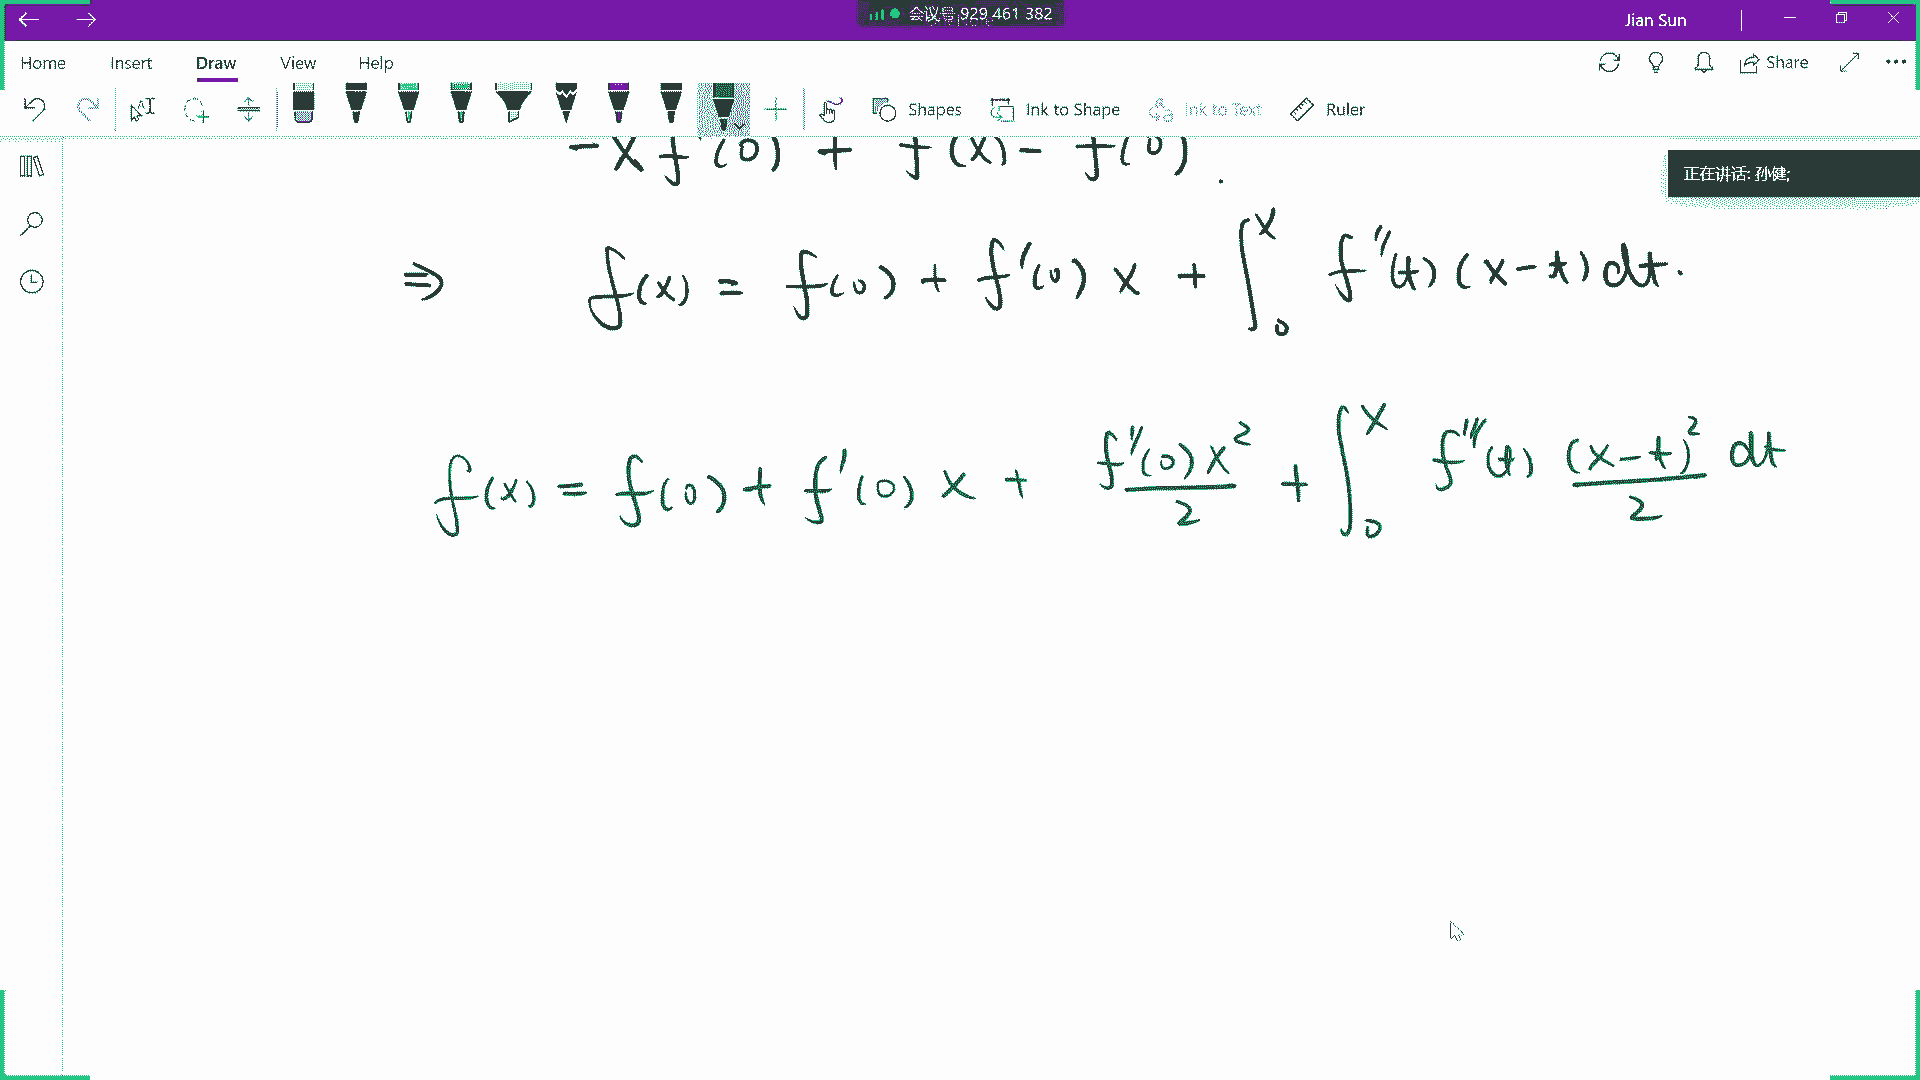 会议号 929 461 382
Jian Sun
Home Insert Draw View Help
Share
Shapes Ink to Shape Ink to Text Ruler
正在讲话: 孙健;
- x f'(0) + f(x) - f(0).
⇒ f(x) = f(0) + f'(0) x + ∫₀ˣ f''(t) (x-t) dt.
f(x) = f(0) + f'(0) x + f''(0) x²/2 + ∫₀ˣ f'''(t) (x-t)²/2 dt